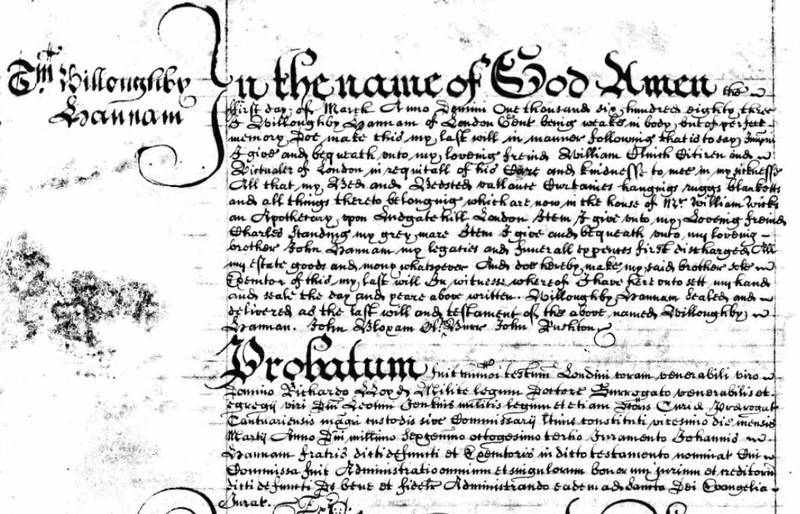 Tm Willoughby
Hannam
In the name of God Amen the
first day of March Anno Domini One thousand six hundred eighty three
I Willoughby Hannam of London Gent being weake in body but of perfect
memory Doe make this my last will in manner following that is to say
I give and bequeath unto my loveing freind William Citizen and
Victualer of London in requitall of his Care and kindnesse to mee in my sicknesse
All that my Bed and Bedsted vallance Curtaines hangings ruggs blanketts
and all things thereto belonging which are now in the house of Mr William
an Apothecary upon Ludgate hill London Item I give unto my Loveing freind
Charles Standing my grey mare Item I give and bequeath unto my loveing
brother John Hannam my legacies and funerall expences first discharged All
my estate goods and mony whatsoever And doe hereby make my said brother sole
Executor of this my last will In witnesse whereof I have hereunto sett my hand
and seale the day and yeare above written Willoughby Hannam Sealed and
delivered as the last will and testament of the above named Willoughby
Hannam. John Bloxam John
Probatum fuit testum Londini coram venerabili viro
Domino Richardo Milite legum Doctore Surrogato venerabilis et
egregii viri Dni Leolini Jenkins militis legum etiam Curiae Prerogat
Cantuariensis magri custodis sive Commissarii ltime constituti vicesimo die mensis
Martii Anno Dni millimo sexgenmo octogesimo tertio Juramento Johannis
Hannam fratris dicti defuncti et Executoris in dicto testamento nominat Cui
Commissa fuit Administratio omnium et singulorum bonorum jurium et creditorum
dicti defuncti De bene et fideliter Administrando eadem ad sancta Dei Evangelia
Jurat.